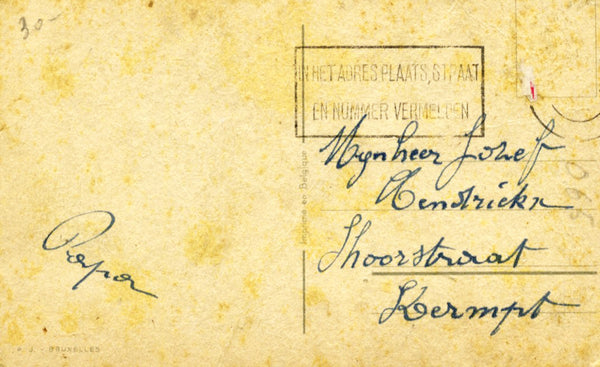 30-
IN HET ADRES PLAATS, STRAAT
EN NUMMER VERMELDEN
Mynheer Jozef
Hendrickx
Thoorstraat
Kermpt
Papa
Imprimé en Belgique
A. J. - BRUXELLES